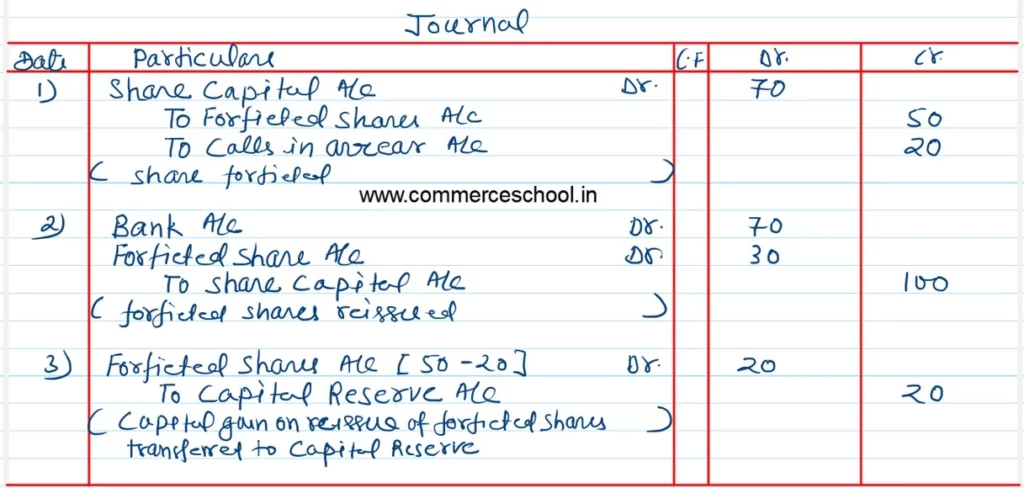 Journal
Date Particulars C.F Dr. Cr.
1) Share Capital A/c Dr. 70
To Forfieted Shares A/c 50
To Calls in arrear A/c 20
( share forfieted )
www.commerceschool.in
2) Bank A/c Dr. 70
Forfieted Share A/c Dr. 30
To Share Capital A/c 100
( forfieted shares reissued )
3) Forfieted Shares A/c [50-20] Dr. 20
To Capital Reserve A/c 20
( Capital gain on reissue of forfieted shares )
transferred to Capital Reserve